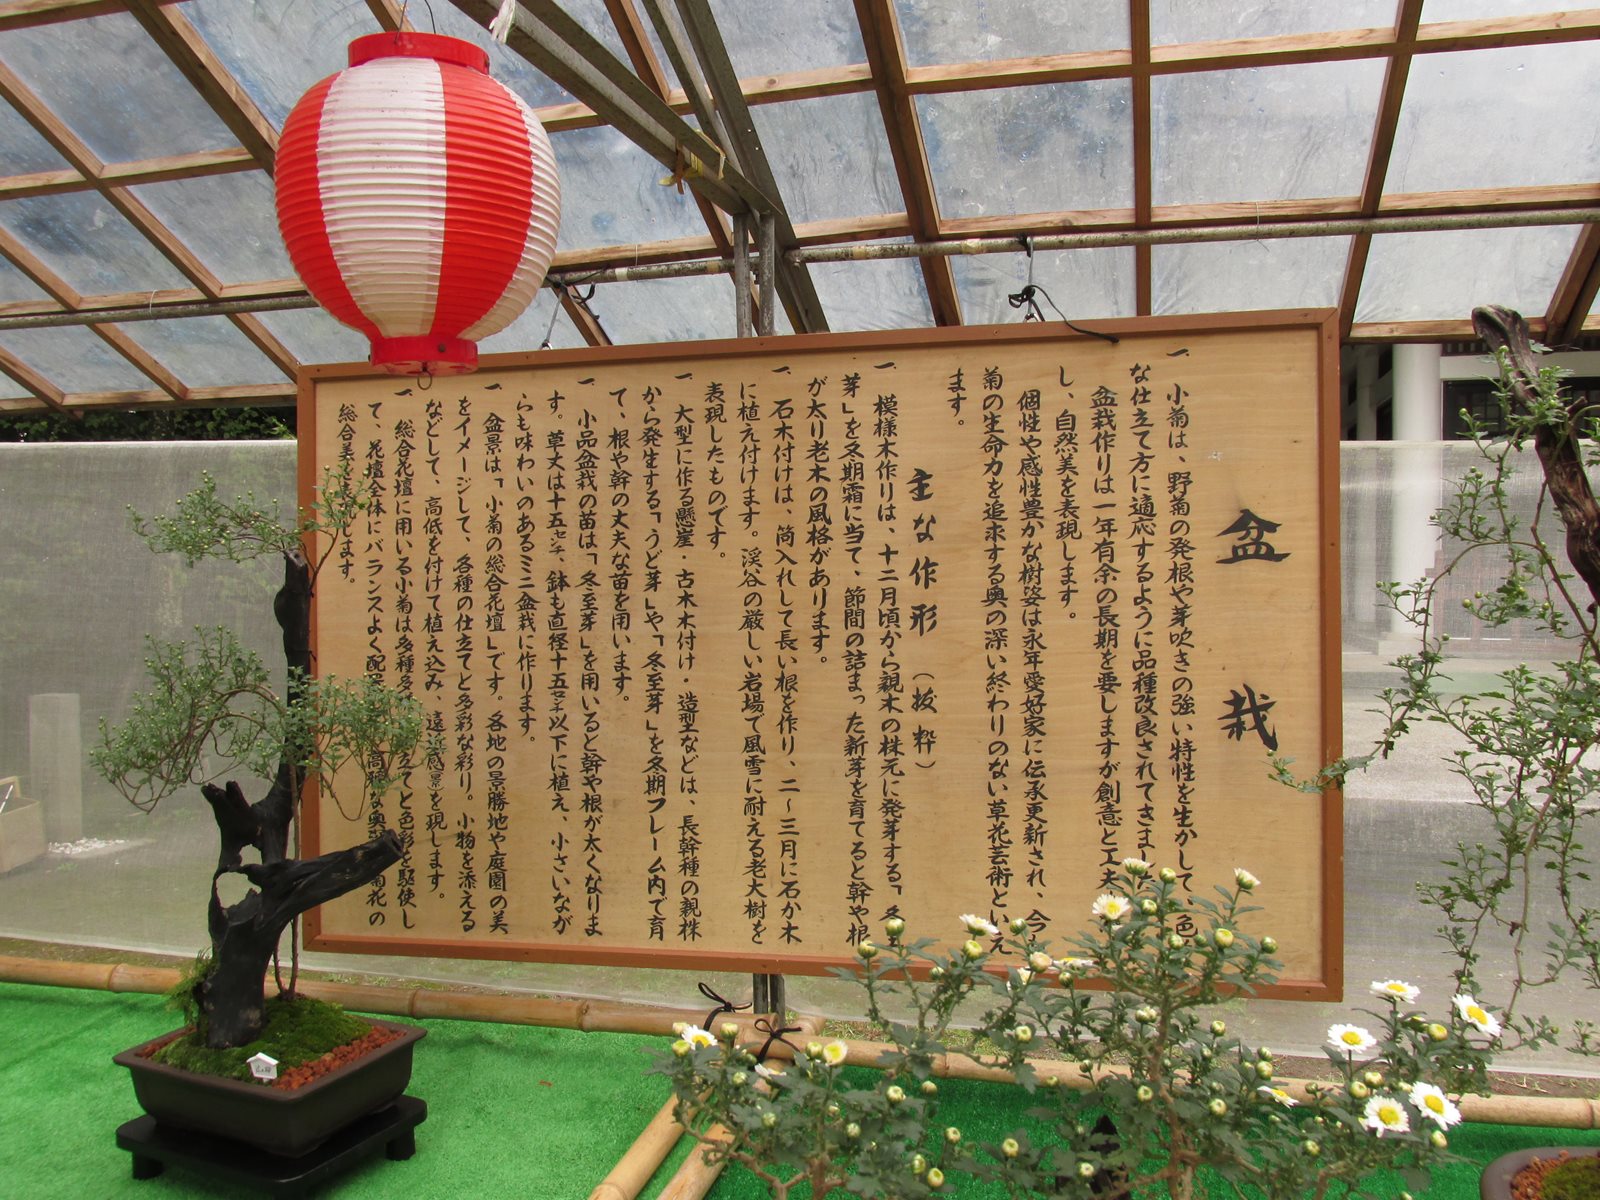 盆栽
一、小菊は、野菊の発根や芽吹きの強い特性を生かして、色
な仕立て方に適応するように品種改良されてきました
盆栽作りは一年有余の長期を要しますが創意と工夫
し、自然美を表現します。
個性や感性豊かな樹姿は永年愛好家に伝承更新され、今
菊の生命力を追求する奥の深い終わりのない草花芸術といえ
ます。
主な作形(抜粋)
一、模様木作りは、十二月頃から親木の株元に発芽する「冬至
芽」を冬期霜に当て、節間の詰まった新芽を育てると幹や根
が太り老木の風格があります。
一、石木付けは、筒入れして長い根を作り、二~三月に石か木
に植え付けます。渓谷の厳しい岩場で風雪に耐える老大樹を
表現したものです。
一、大型に作る懸崖・古木木付け・造型などは、長幹種の親株
から発生する「うど芽」や「冬至芽」を冬期フレーム内で育
て、根や幹の丈夫な苗を用います。
一、小品盆栽の苗は「冬至芽」を用いると幹や根が太くなりま
す。草丈は十五センチ、鉢も直径十五センチ以下に植え、小さいなが
らも味わいのあるミニ盆栽に作ります。
一、盆景は「小菊の総合花壇」です。各地の景勝地や庭園の美
をイメージして、各種の仕立てと多彩な彩り。小物を添える
などして、高低を付けて植え込み、遠近感景を現します。
一、総合花壇に用いる小菊は多種多 立てと色彩を駆使し
て、花壇全体にバランスよく配 高 な 菊花の
総合美を表 します。